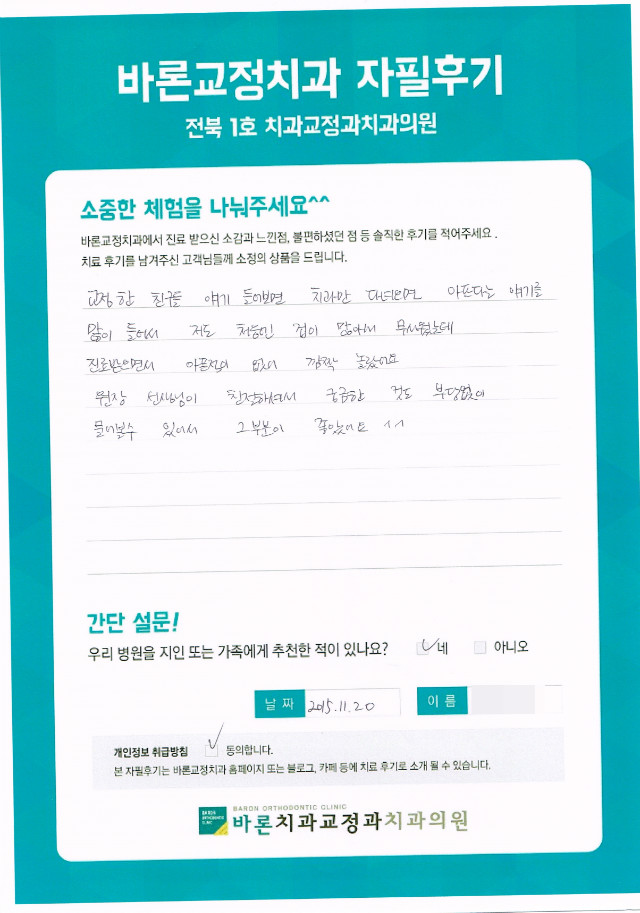 바론교정치과 자필후기
전북 1호 치과교정과치과의원
소중한 체험을 나눠주세요^^
바론교정치과에서 진료 받으신 소감과 느낀점, 불편하셨던 점 등 솔직한 후기를 적어주세요 .
치료 후기를 남겨주신 고객님들께 소정의 상품을 드립니다.
교정한 친구들 얘기 들어보면 치과만 다녀오면 아프다는 얘기를
많이 들어서 저도 처음엔 겁이 많아서 무서웠는데
진료받으면서 아픈적이 없어 깜짝 놀랐어요
원장 선생님이 친절하셔서 궁금한 것도 부담없이
물어볼수 있어서 그부분이 좋았어요 ^^
간단 설문!
우리 병원을 지인 또는 가족에게 추천한 적이 있나요? 네 아니오
날 짜 2015.11.20 이 름
개인정보 취급방침 동의합니다.
본 자필후기는 바론교정치과 홈페이지 또는 블로그, 카페 등에 치료 후기로 소개 될 수 있습니다.
BARON ORTHODONTIC CLINIC
바론치과교정과치과의원